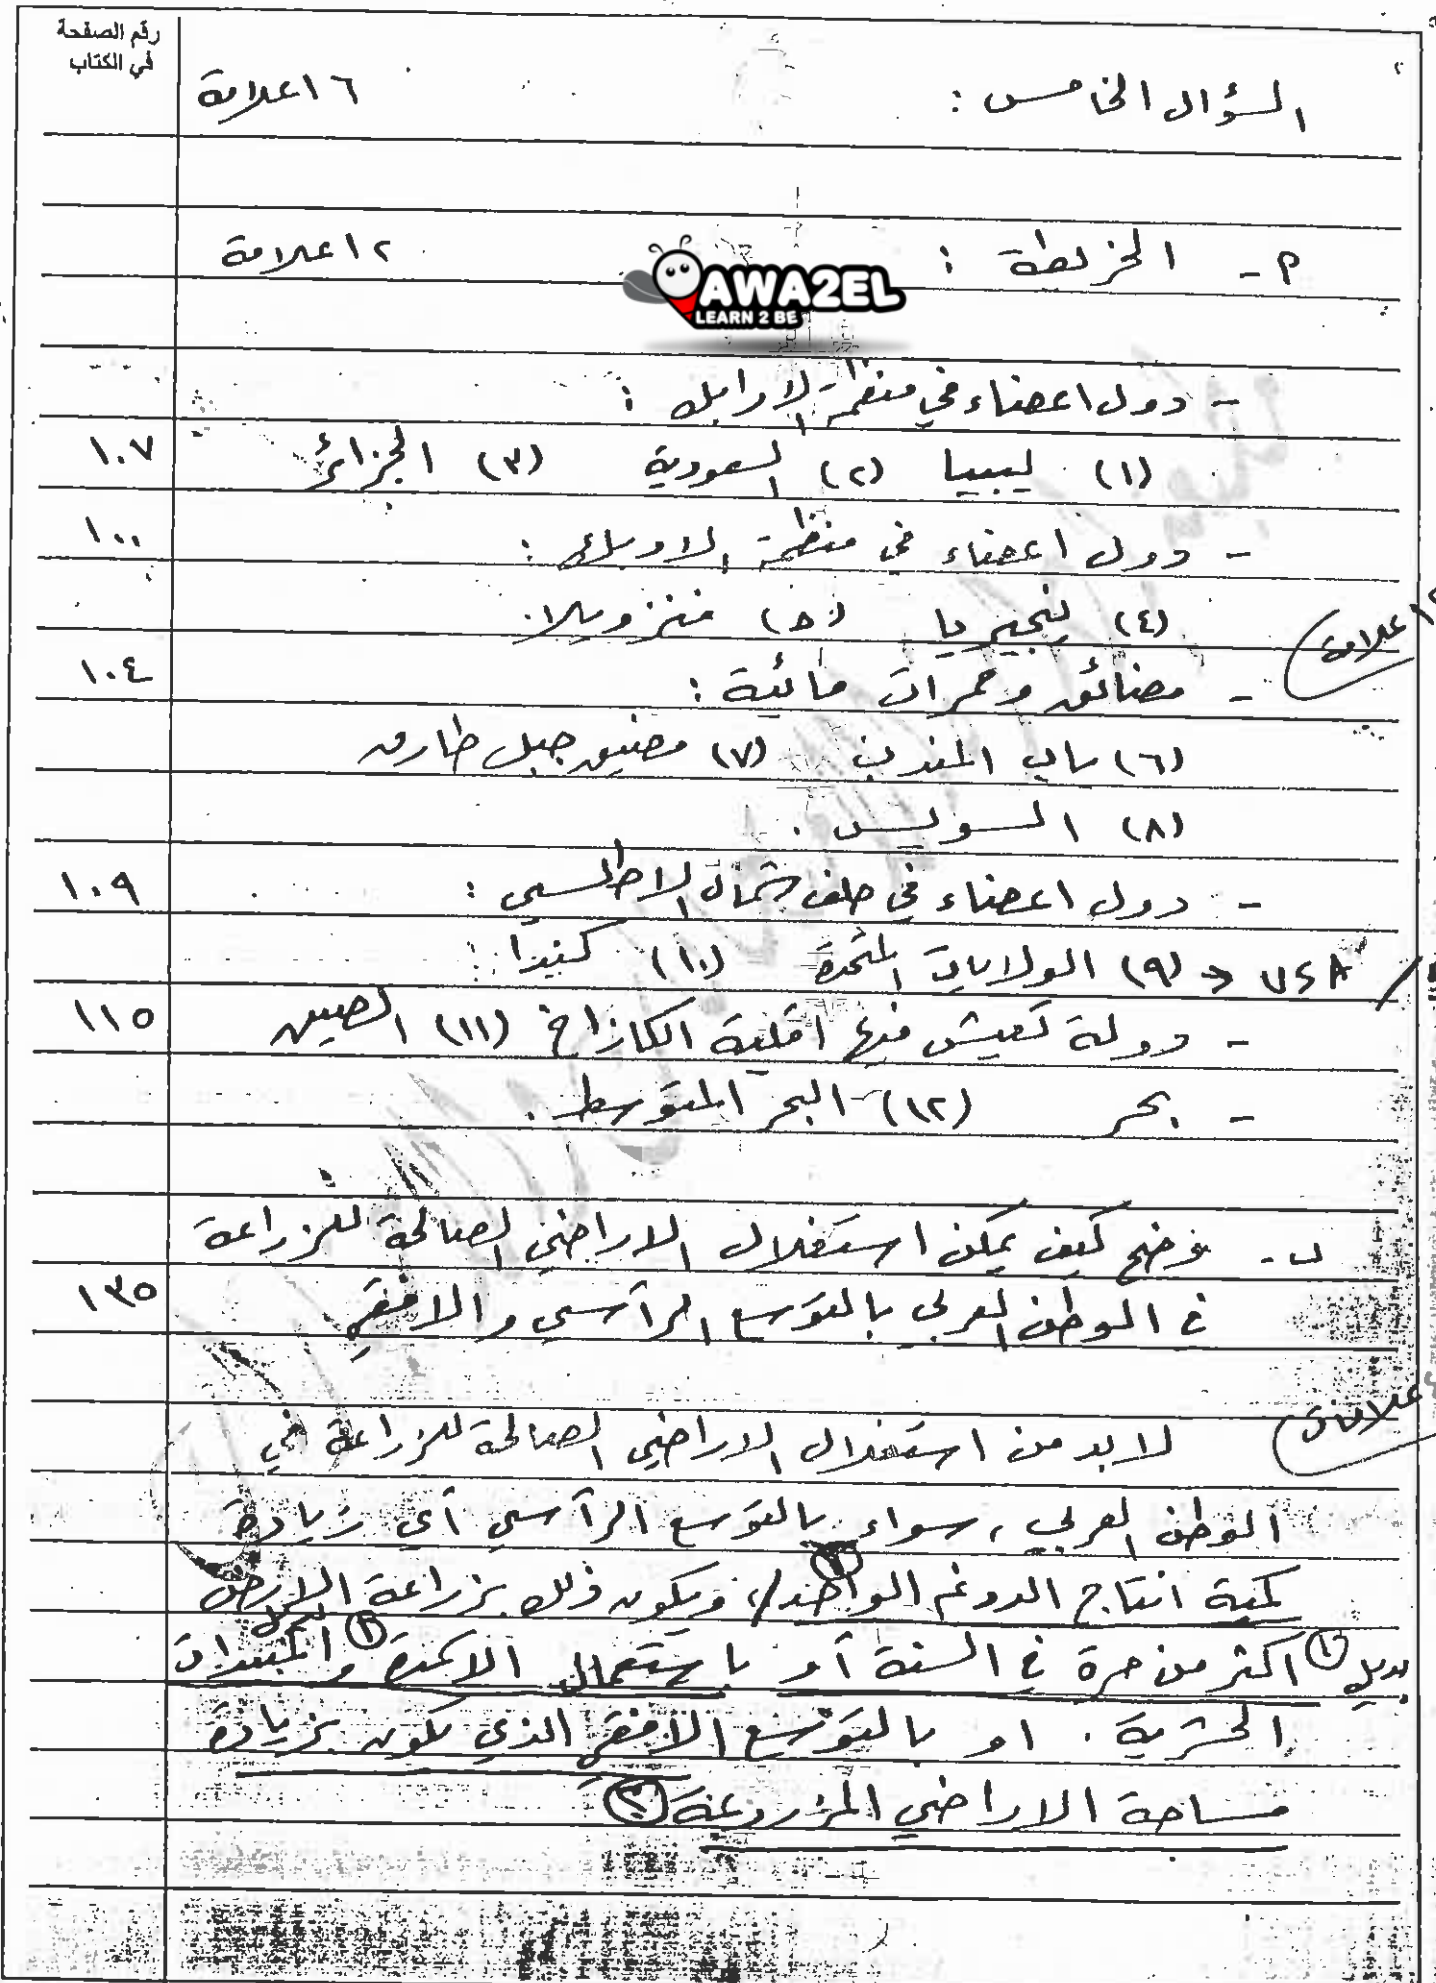 رقم الصفحة
في الكتاب
السؤال الخامس : ١٦ علامة
٢
أ - الخريطة : ١٢ علامة
AWA2EL
LEARN 2 BE
- دول اعضاء في منظمة الاوابك :
(١) ليبيا (٢) السعودية (٣) الجزائر ١٠٧
- دول اعضاء في منظمة الاوبك : ١٠٠
(٤) نيجيريا (٥) فنزويلا . ١٢ علامة
- مضائق وممرات مائية : ١٠٤
(٦) باب المندب (٧) مضيق جبل طارق
(٨) السويس .
- دول اعضاء في حلف شمال الاطلسي : ١٠٩
USA → (٩) الولايات المتحدة (١٠) كندا
- دولة تعيش فيها اقلية الكازاخ (١١) الصين ١١٥
- بحر (١٢) البحر المتوسط .
ب - وضح كيف يمكن استغلال الاراضي الصالحة للزراعة
في الوطن العربي بالتوسع الرأسي والافقي ١٣٥
علامات
لابد من استغلال الاراضي الصالحة للزراعة في
الوطن العربي ، سواء بالتوسع الرأسي أي زيادة
كمية انتاج الدونم الواحد ، ويكون ذلك بزراعة الارض
بديل ① اكثر من مرة في السنة أو باستعمال الاسمدة والمبيدات
الحشرية . او بالتوسع الافقي الذي يكون بزيادة
مساحة الاراضي المزروعة